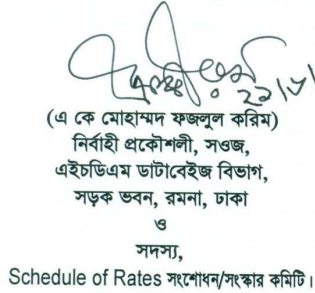 (এ কে মোহাম্মদ ফজলুল করিম)
নির্বাহী প্রকৌশলী, সওজ,
এইচডিএম ডাটাবেইজ বিভাগ,
সড়ক ভবন, রমনা, ঢাকা
ও
সদস্য,
Schedule of Rates সংশোধন/সংস্কার কমিটি।